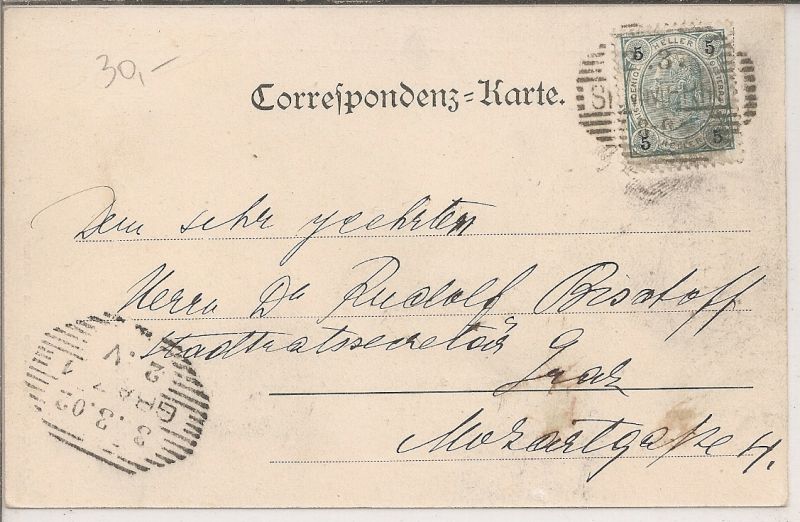 30,-
Correspondenz-Karte.
5 HELLER 5
5 5
Dem sehr geehrten
Herrn Dr Rudolf Bischoff
Stadtratssecretär
Graz
Mozartgasse 4.
GRAZ 1
2. V
3.3.02